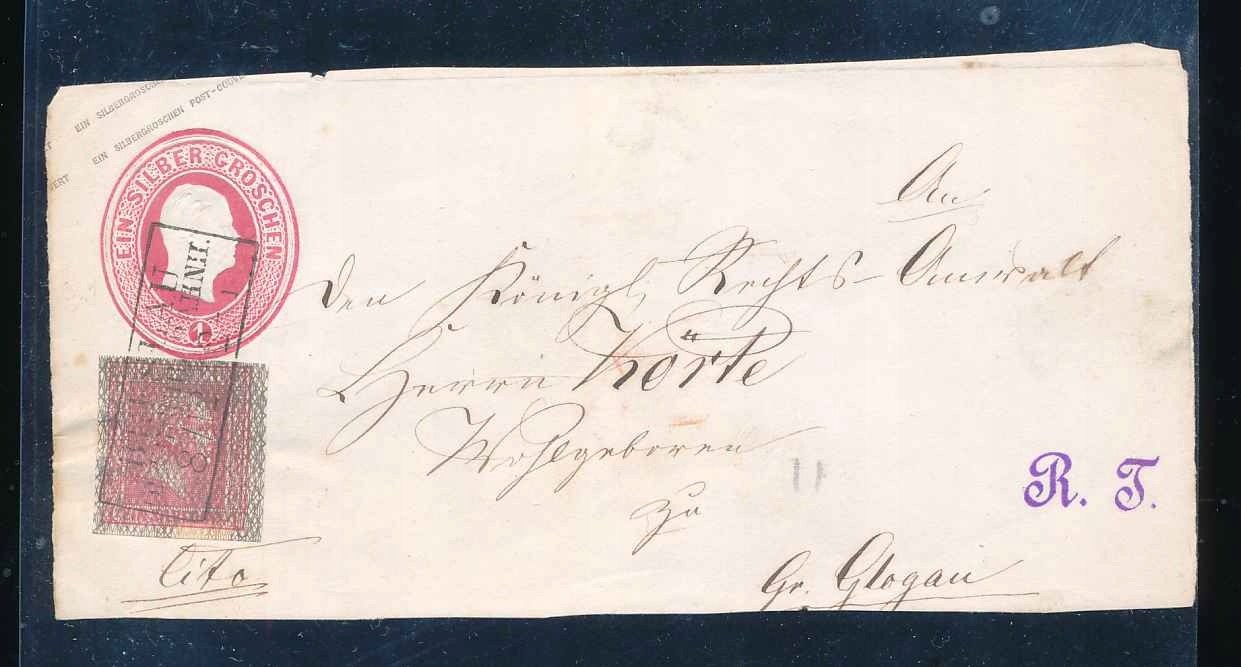 EIN SILBERGROSCHEN
EIN SILBERGROSCHEN POST-COUVERT
EIN SILBER GROSCHEN
1
BRESLAU
BAHNH.
An
Den Königl. Rechts-Anwalt
Herrn Körte
Wohlgeboren
zu
Gr. Glogau
Cito
R. T.